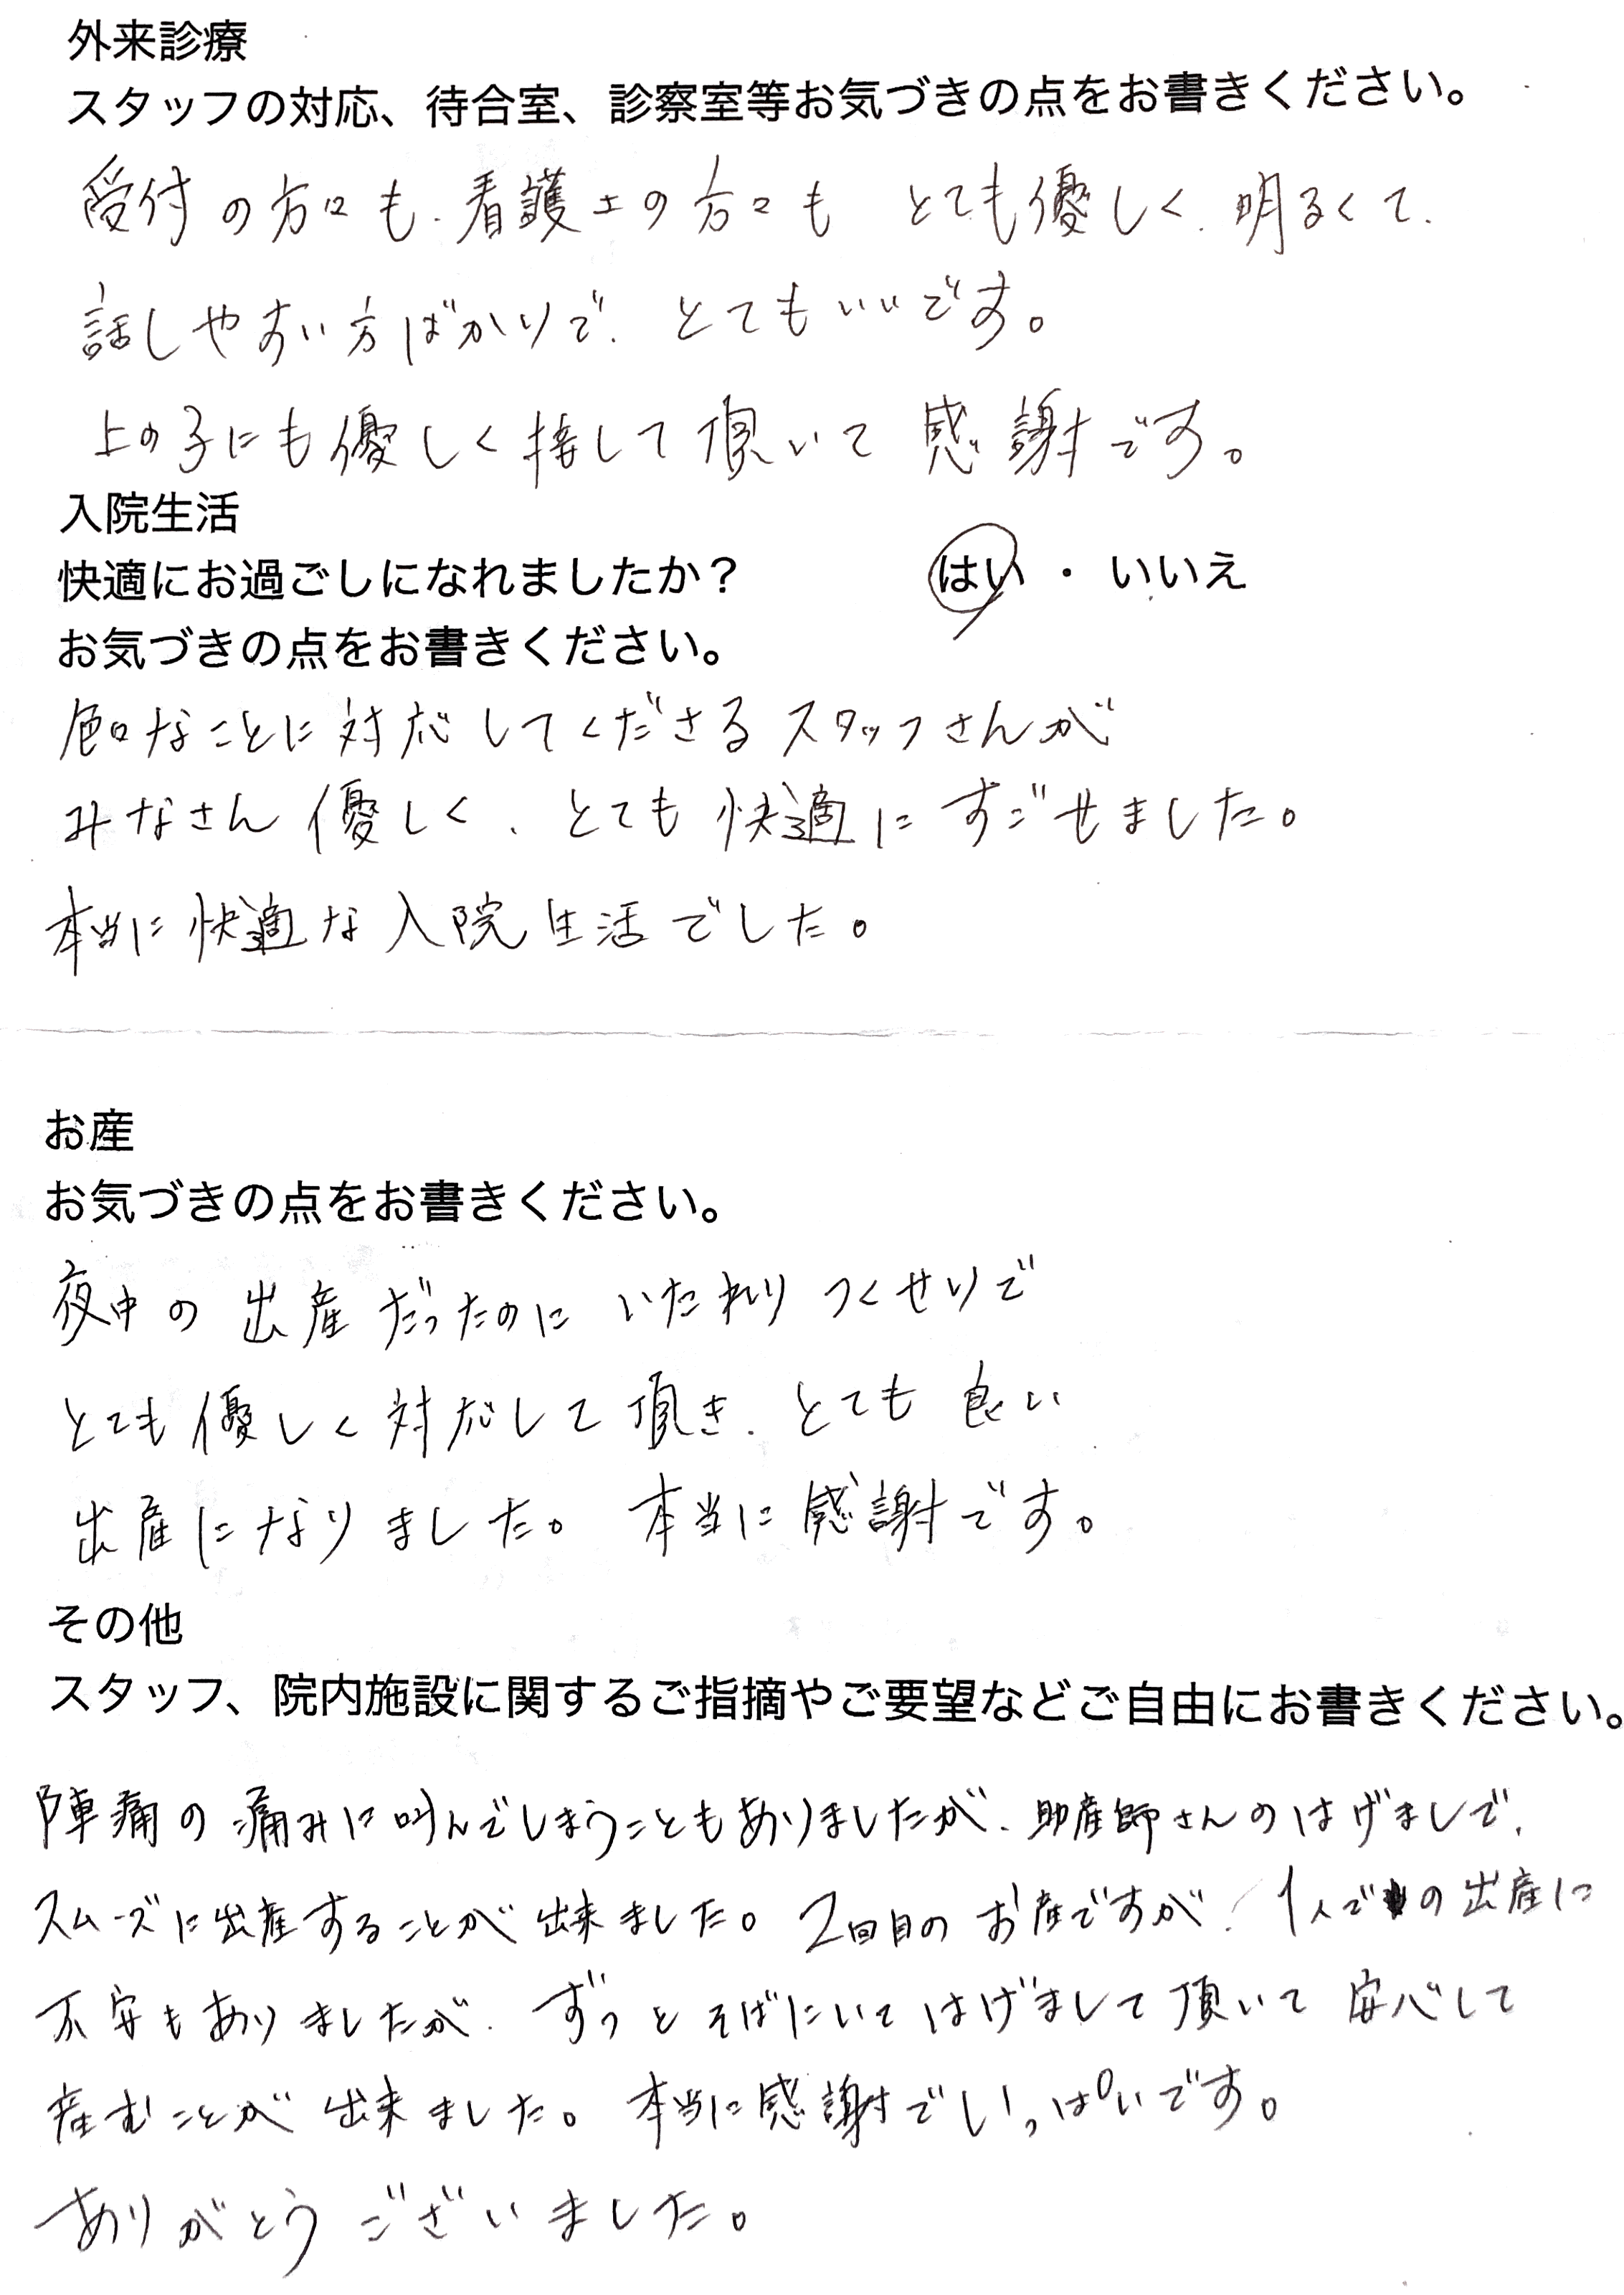 外来診療
スタッフの対応、待合室、診察室等お気づきの点をお書きください。
受付の方々も、看護士の方々も とても優しく、明るくて、
話しやすい方ばかりで、とてもいいです。
上の子にも優しく接して頂いて 感謝です。
入院生活
快適にお過ごしになれましたか？ はい ・ いいえ
お気づきの点をお書きください。
色々なことに対応してくださるスタッフさんが
みなさん優しく、とても快適にすごせました。
本当に快適な入院生活でした。
お産
お気づきの点をお書きください。
夜中の出産だったのに いたれりつくせりで
とても優しく対応して頂き、とても良い
出産になりました。本当に感謝です。
その他
スタッフ、院内施設に関するご指摘やご要望などご自由にお書きください。
陣痛の痛みに叫んでしまうこともありましたが、助産師さんのはげましで、
スムーズに出産することが出来ました。2回目のお産ですが、1人での出産に
不安もありましたが、ずっとそばにいてはげまして頂いて安心して
産むことが出来ました。本当に感謝でいっぱいです。
ありがとうございました。